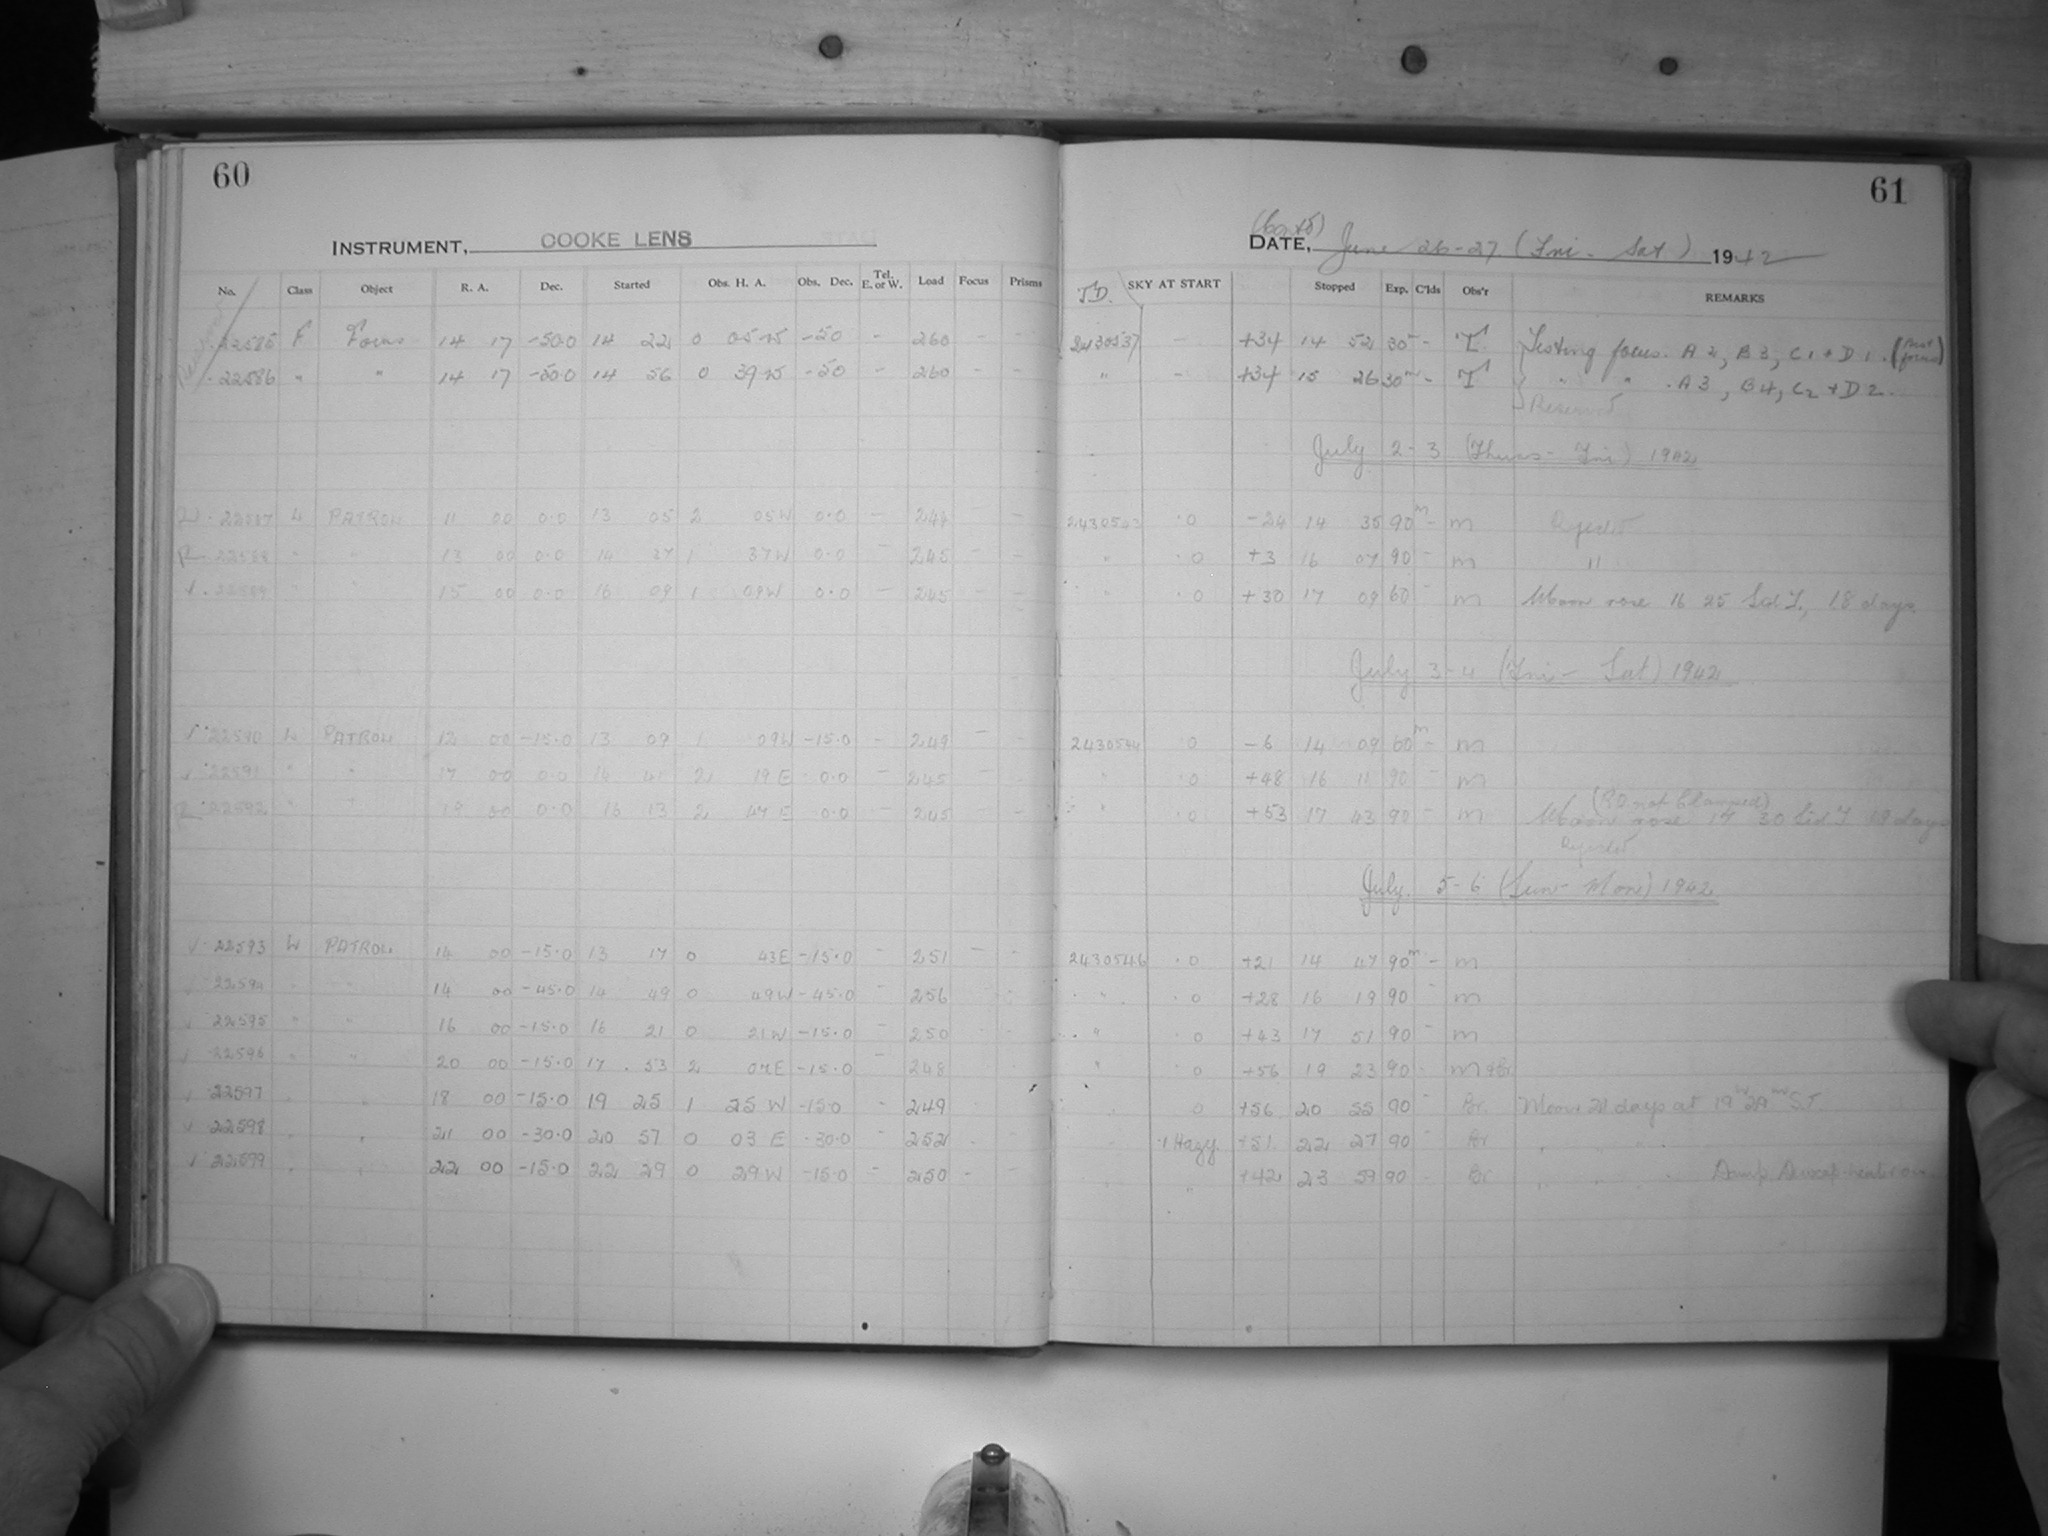 60
INSTRUMENT, COOKE LENS
No. Class Object R. A. Dec. Started Obs. H. A. Obs. Dec. Tel. E. or W. Load Focus Prisms
22585 F Focus 14 17 -50.0 14 22 0 05 -50 - 260 - -
22586 " " 14 17 -50.0 14 56 0 39 -50 - 260 - -
22587 L PATROL 11 00 0.0 13 05 2 05W 0.0 - - -
22588 " " 13 00 0.0 14 37 1 37W 0.0 - 245 - -
22589 " " 15 00 0.0 16 09 1 09W 0.0 - 245 - -
22590 L PATROL 12 00 -15.0 13 09 1 09W -15.0 - 249 - -
22591 " " 17 00 0.0 14 41 2 19E 0.0 - 245 - -
22592 " " 19 00 0.0 16 13 2 47E 0.0 - 245
22593 L PATROL 14 00 -15.0 13 17 0 43E -15.0 - 251 - -
22594 " " 14 00 -45.0 14 49 0 49W -45.0 - 256
22595 " " 16 00 -15.0 16 21 0 21W -15.0 - 250
22596 " " 20 00 -15.0 17 53 2 07E -15.0 - 248
22597 18 00 -15.0 19 25 1 25W -15.0 - 249
22598 21 00 -30.0 20 57 0 03E -30.0 - 252
22599 22 00 -15.0 22 29 0 29W -15.0 - 250 - -
61
(Contd)
DATE, June 26-27 (Fri - Sat) 1942
J.D. SKY AT START Stopped Exp. C'lds Obs'r REMARKS
2430537 - +34 14 52 30m - T Testing focus. A2, B3, C1 + D1. (best focus)
" - +34 15 26 30m - T " " A3, B4, C2 + D2.
Reserved
July 2-3 (Thurs - Fri) 1942
2430543 .0 -24 14 35 90m - m Rejected
" .0 +3 16 07 90 - m "
" .0 +30 17 09 60 - m Moon rose 16 25 Sid. T., 18 days.
July 3-4 (Fri - Sat) 1942
2430544 .0 -6 14 09 60m - m
" .0 +48 16 11 90 - m
(RA not Clamped)
" .0 +53 17 43 90 - m Moon rose 17 30 Sid T 19 days
Rejected
July 5-6 (Sun - Mon) 1942
2430546 .0 +21 14 47 90m - m
" .0 +28 16 19 90 - m
" .0 +43 17 51 90 - m
" .0 +56 19 23 90 - m + Br.
0 +56 20 55 90 - Br. Moon 21 days at 19h 29m S.T.
.1 Hazy +51 22 27 90 - Br " " "
" +42 23 59 90 - Br " " " Damp. Dewcap heater on